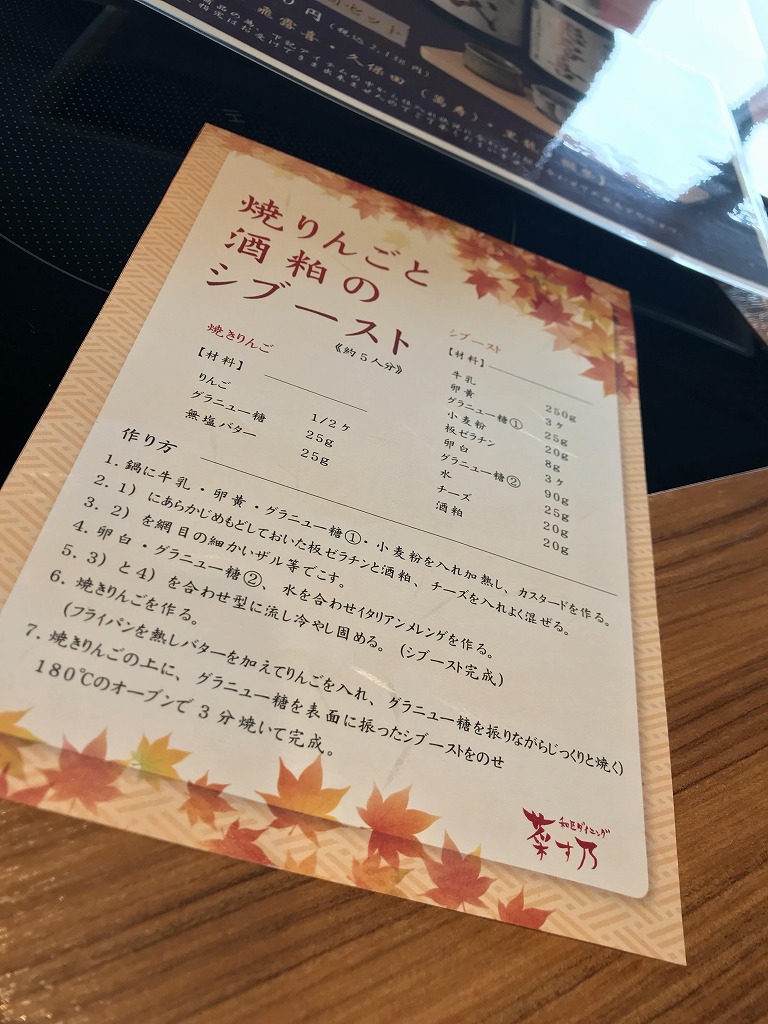 円(税込2,138円)
飛露喜・久保田(萬寿)・
焼りんごと
酒粕の
シブースト
《約5人分》
焼きりんご
【材料】
りんご 1/2ヶ
グラニュー糖 25g
無塩バター 25g
シブースト
【材料】
牛乳 250g
卵黄 3ヶ
グラニュー糖① 25g
小麦粉 20g
板ゼラチン 8g
卵白 3ヶ
グラニュー糖② 90g
水 25g
チーズ 20g
酒粕 20g
作り方
1. 鍋に牛乳・卵黄・グラニュー糖①・小麦粉を入れ加熱し、カスタードを作る。
2. 1）にあらかじめもどしておいた板ゼラチンと酒粕、チーズを入れよく混ぜる。
3. 2）を網目の細かいザル等でこす。
4. 卵白・グラニュー糖②、水を合わせイタリアンメレンゲを作る。
5. 3）と4）を合わせ型に流し冷やし固める。(シブースト完成)
6. 焼きりんごを作る。
(フライパンを熱しバターを加えてりんごを入れ、グラニュー糖を振りながらじっくりと焼く)
7. 焼きりんごの上に、グラニュー糖を表面に振ったシブーストをのせ
180℃のオーブンで3分焼いて完成。
和豆ダイニング
菜す乃